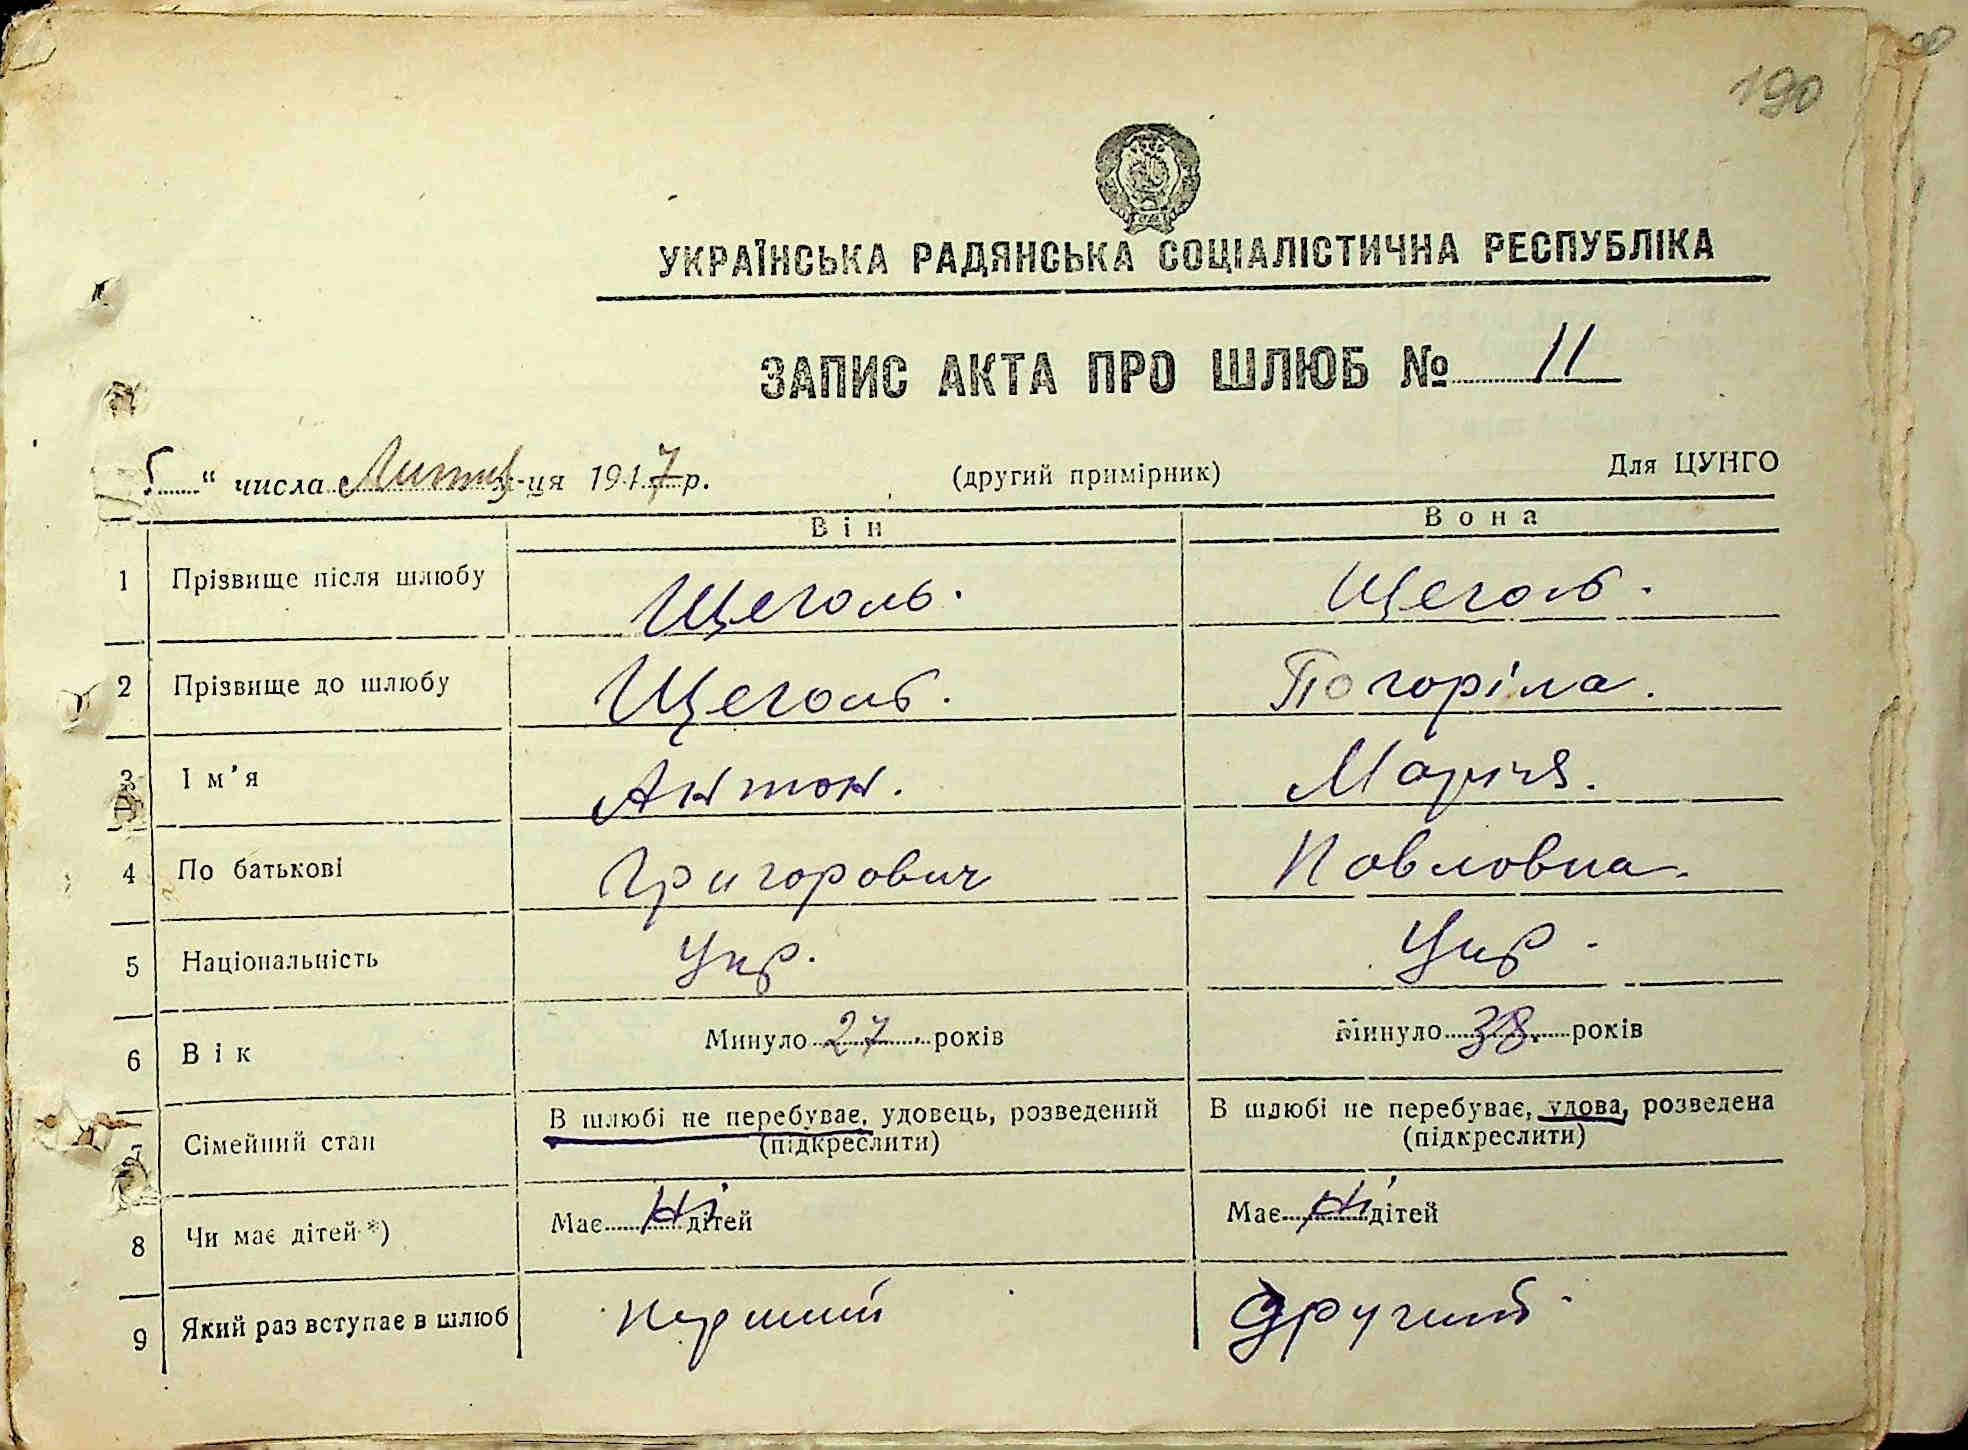 190
УКРАЇНСЬКА РАДЯНСЬКА СОЦІАЛІСТИЧНА РЕСПУБЛІКА
ЗАПИС АКТА ПРО ШЛЮБ № 11
5 “ числа м-ця 1947 р. (другий примірник) Для ЦУНГО
Він Вона
1 Прізвище після шлюбу Щеголь. Щеголь.
2 Прізвище до шлюбу Щеголь. Погоріла.
3 Ім’я Антон. Марія.
4 По батькові Григорович Повловна.
5 Національність Укр. Укр.
6 Вік Минуло 27 років Минуло 38. років
7 Сімейний стан В шлюбі не перебуває, удовець, розведений В шлюбі не перебуває, удова, розведена
(підкреслити) (підкреслити)
8 Чи має дітей *) Має Ні дітей Має Ні дітей
9 Який раз вступає в шлюб перший другий.